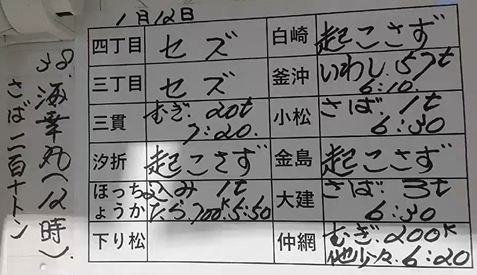 1月12日
四丁目 セズ
白崎 起こさず
三丁目 セズ
釜沖 いわし.57t
6:10.
三貫 むぎ.20t
7:20.
小松 さば 1t
6:30
汐折 起こさず
金島 起こさず
ほっち
ょうか
込み 1t
たら.700K.5:50
大建 さば 3t
6:30
下り松
仲網 むぎ.200K
他少々.6:20
38.海幸丸(12時).
さば 二百十トン